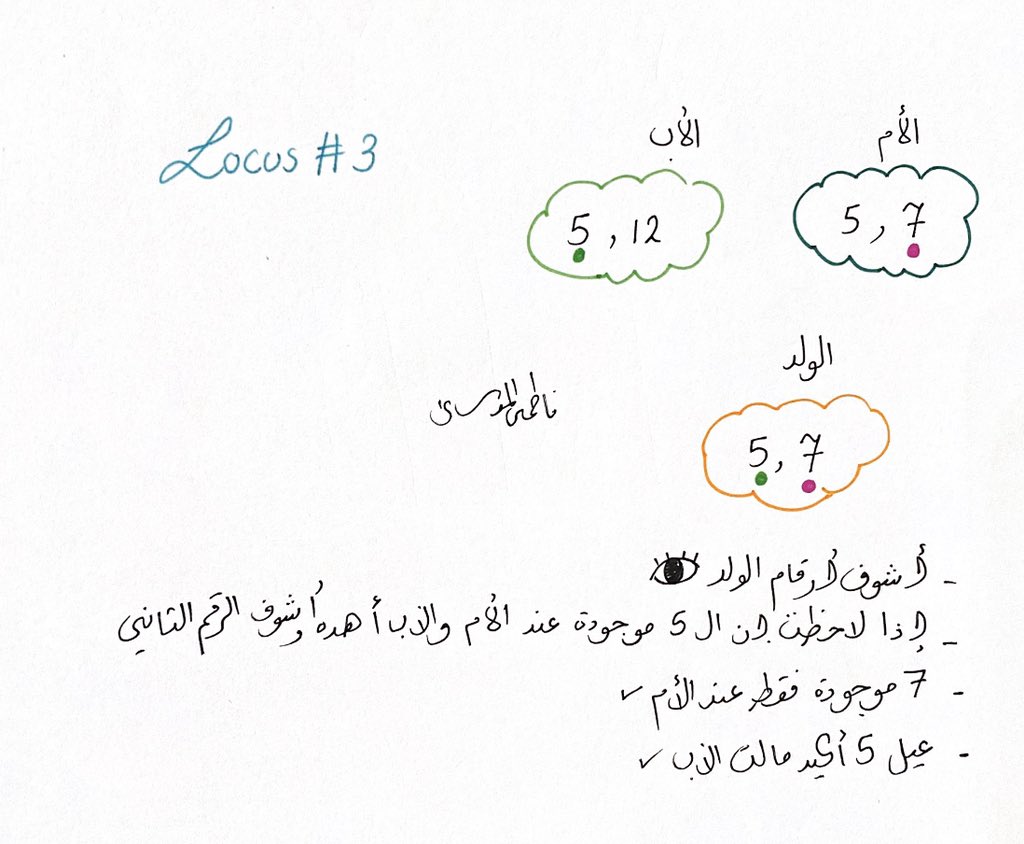 Locus #3
الأم
الأب
5, 7
5, 12
الولد
5, 7
فاطمة الموسى
- أشوف أرقام الولد
- إذا لاحظت إن ال 5 موجودة عند الأم والأب أهده وأشوف الرقم الثاني
- 7 موجودة فقط عند الأم ✓
- عيل 5 أكيد مالت الأب ✓